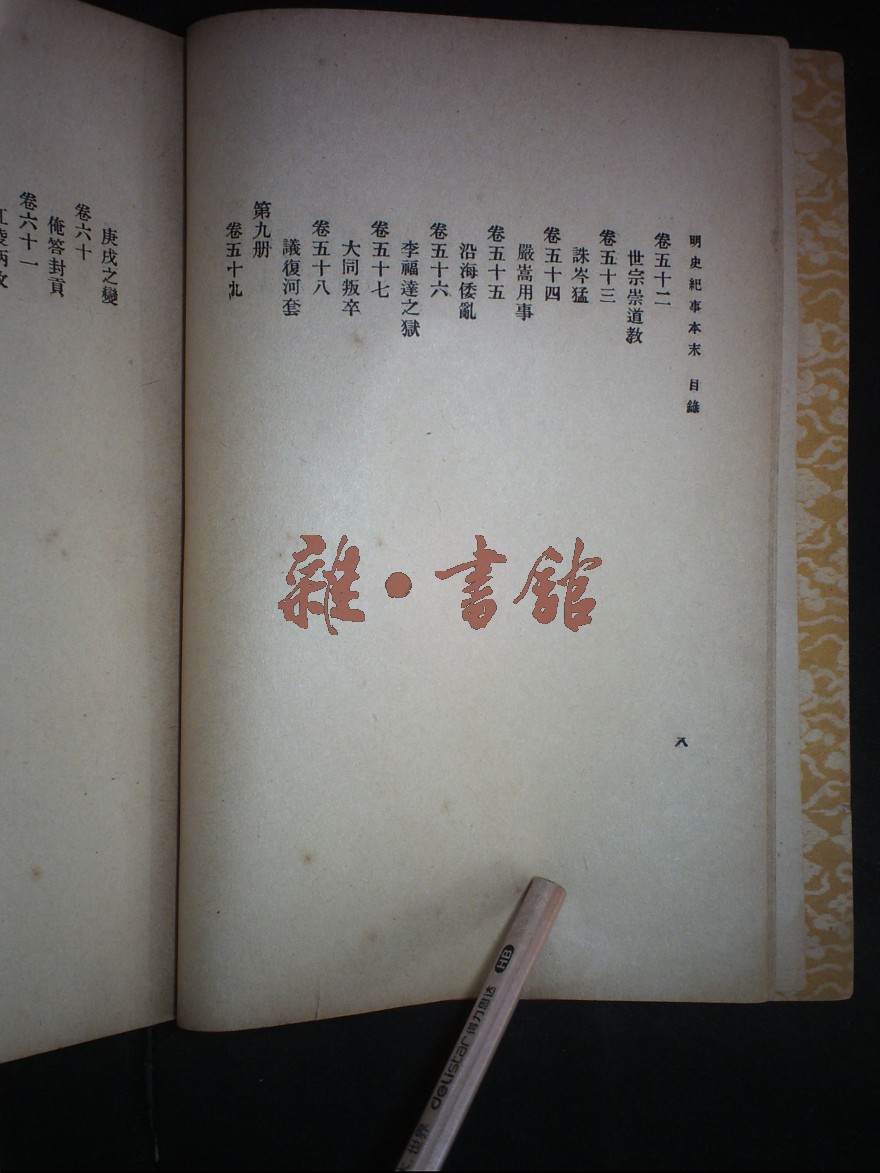 明史紀事本末 目錄
卷五十二
世宗崇道教
卷五十三
誅岑猛
卷五十四
嚴嵩用事
卷五十五
沿海倭亂
卷五十六
李福達之獄
卷五十七
大同叛卒
卷五十八
議復河套
第九册
卷五十九
八
庚戌之變
卷六十
俺答封貢
卷六十一
江陵柄政
雜·書館
HB
得力思达
delistar
世界